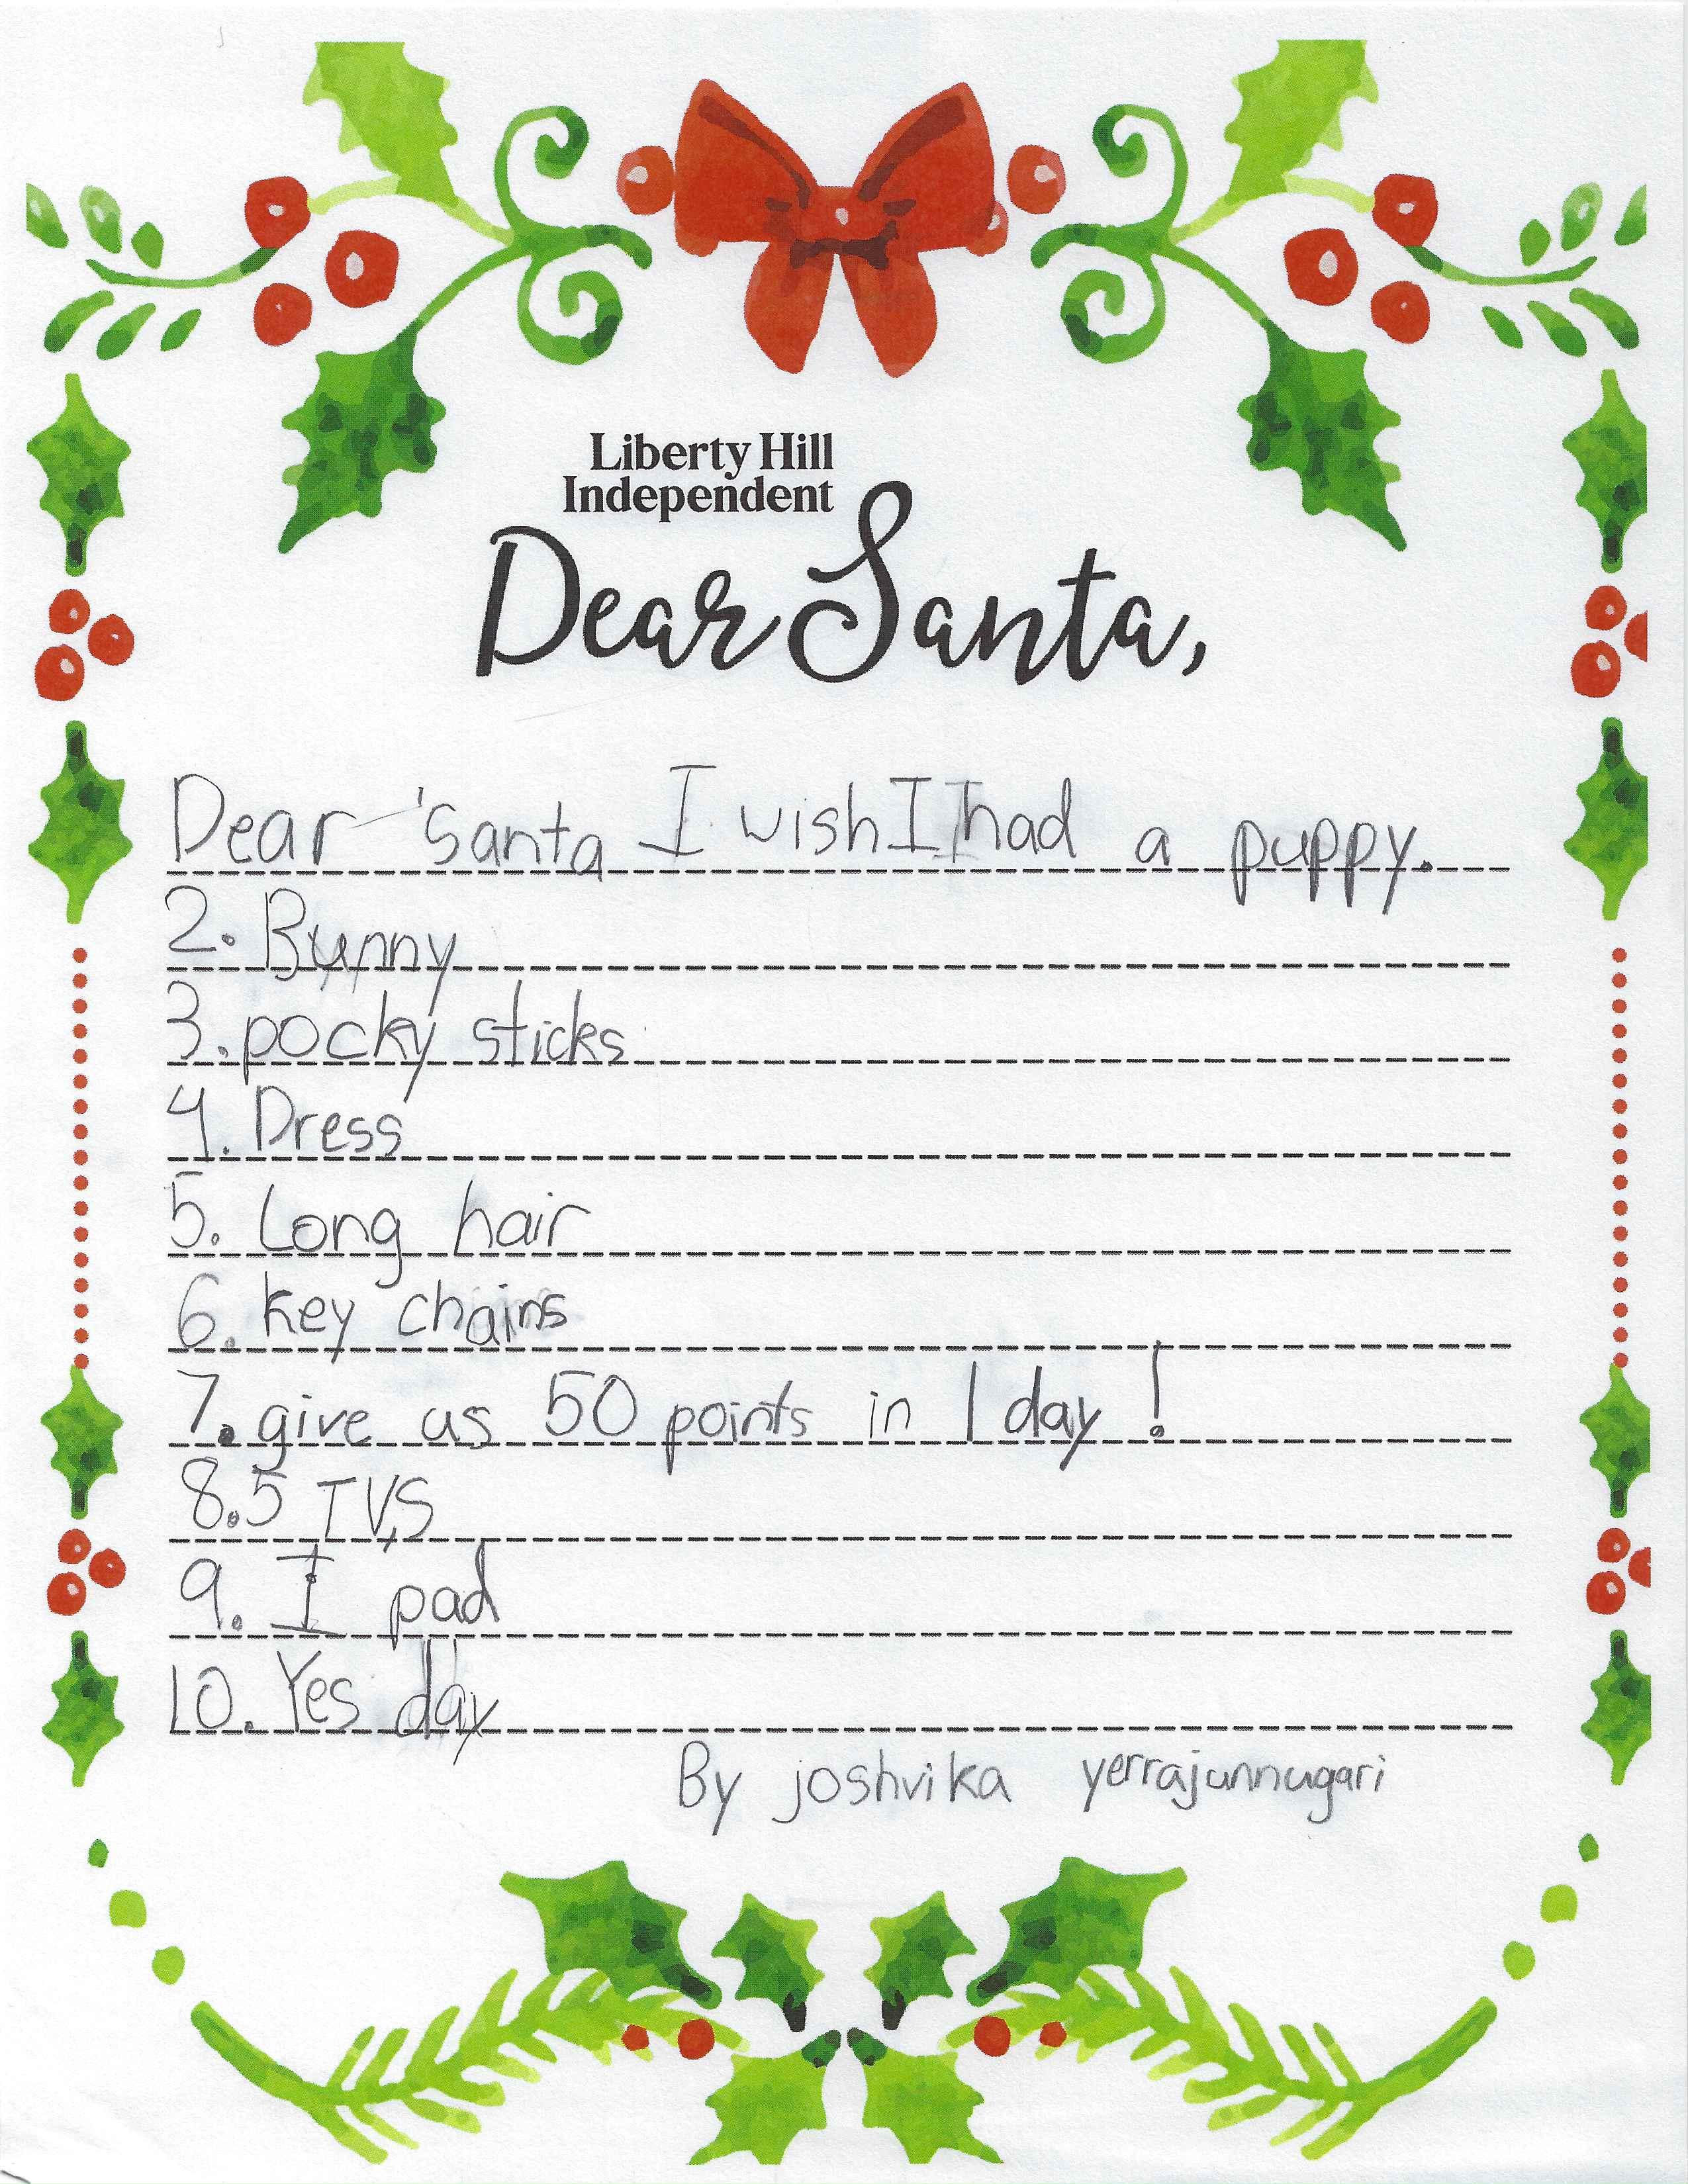 Liberty Hill
Independent
Dear Santa,
Dear Santa I wish I had a puppy.
2. Bunny
3. pocky sticks
4. Dress
5. Long hair
6. key chains
7. give us 50 points in 1 day!
8. 5 TV,S
9. I pad
10. Yes day
By joshvika yerrajunnugari